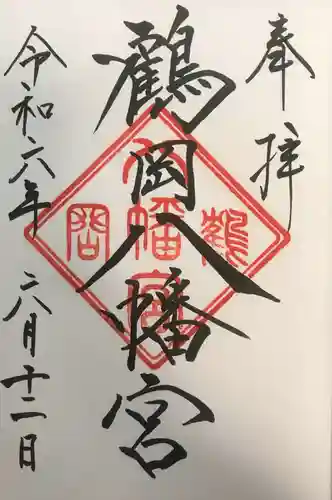 奉拝
鶴岡八幡宮
令和六年 六月十二日
鶴
八幡宮
岡